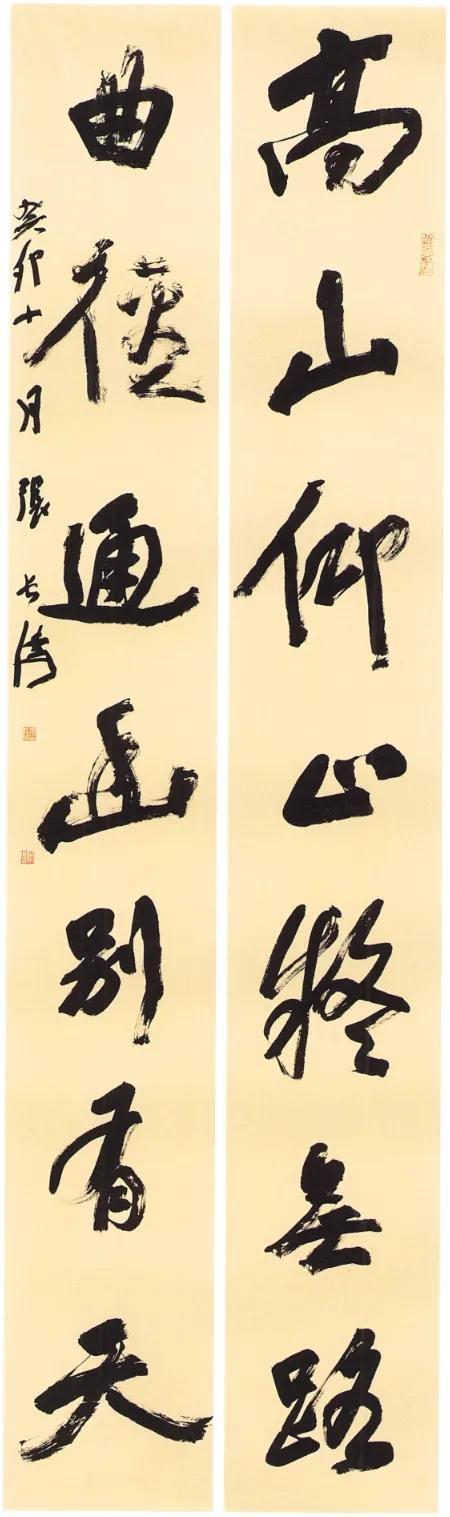 高山仰止疑無路
曲徑通幽別有天
癸卯十月 張长